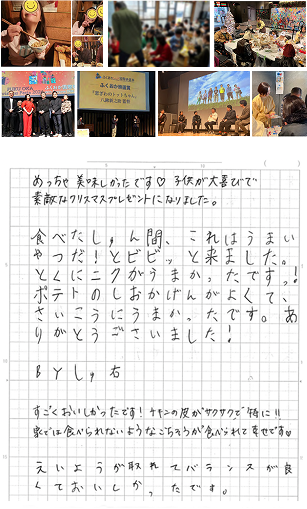 ふくおか映画賞
めっちゃ美味しかったです♡ 子供が大喜びで
素敵なクリスマスプレゼントになりました。
食べたしゅん間、これはうまい
やつだ!とビビッと来ました。
とくにニクがうまかったですっ!
ポテトのしおかげんがよくて、
さいこうにうまかったです。あ
りがとうございました!
BYしゅ右
すごくおいしかったです!チキンの皮がサクサクで特に!!
家では食べられないようなごちそうが食べられて幸せです♡
えいようが取れてバランスが良
くておいしかったです。